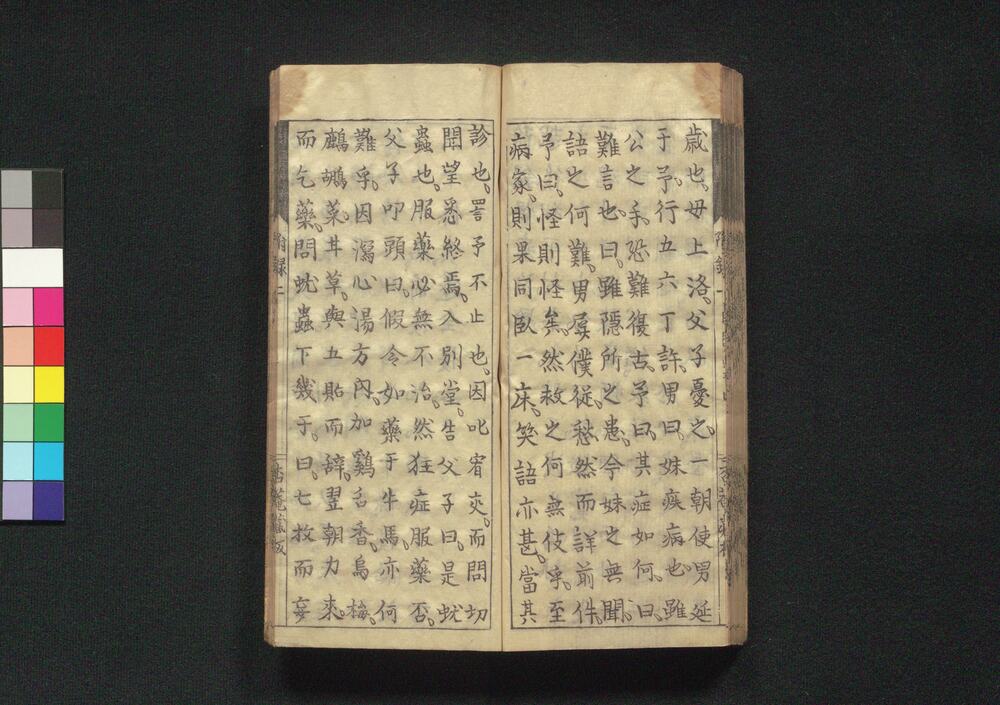 歳也。毋上洛。父子憂之。一朝使男延
于予。行五六丁許。男曰。妹疾病也。雖
公之手。恐難復古。予曰。其症如何。曰。
難言也。曰。雖隠所之患。今妹之無聞
語之何難。男屏僕従。愁然而詳前件。
予曰。怪則怪矣。然救之何無伎乎。至
病家。則果同臥一床。笑語亦甚。當其
診也。詈予不止也。因叱宥交。而問切
聞望悉終焉。入別堂。告父子曰。是蚘
蟲也。服藥必無不治。然狂症服藥否。
父子叩頭曰。假令如藥于牛馬。亦何
難乎。因瀉心湯方內。加雞舌香。烏梅。
鷓鴣菜。甘草。與五貼而辞。翌朝力來。
而乞藥。問蚘蟲下幾于。曰。七枚而妄
附録 一
附録 二